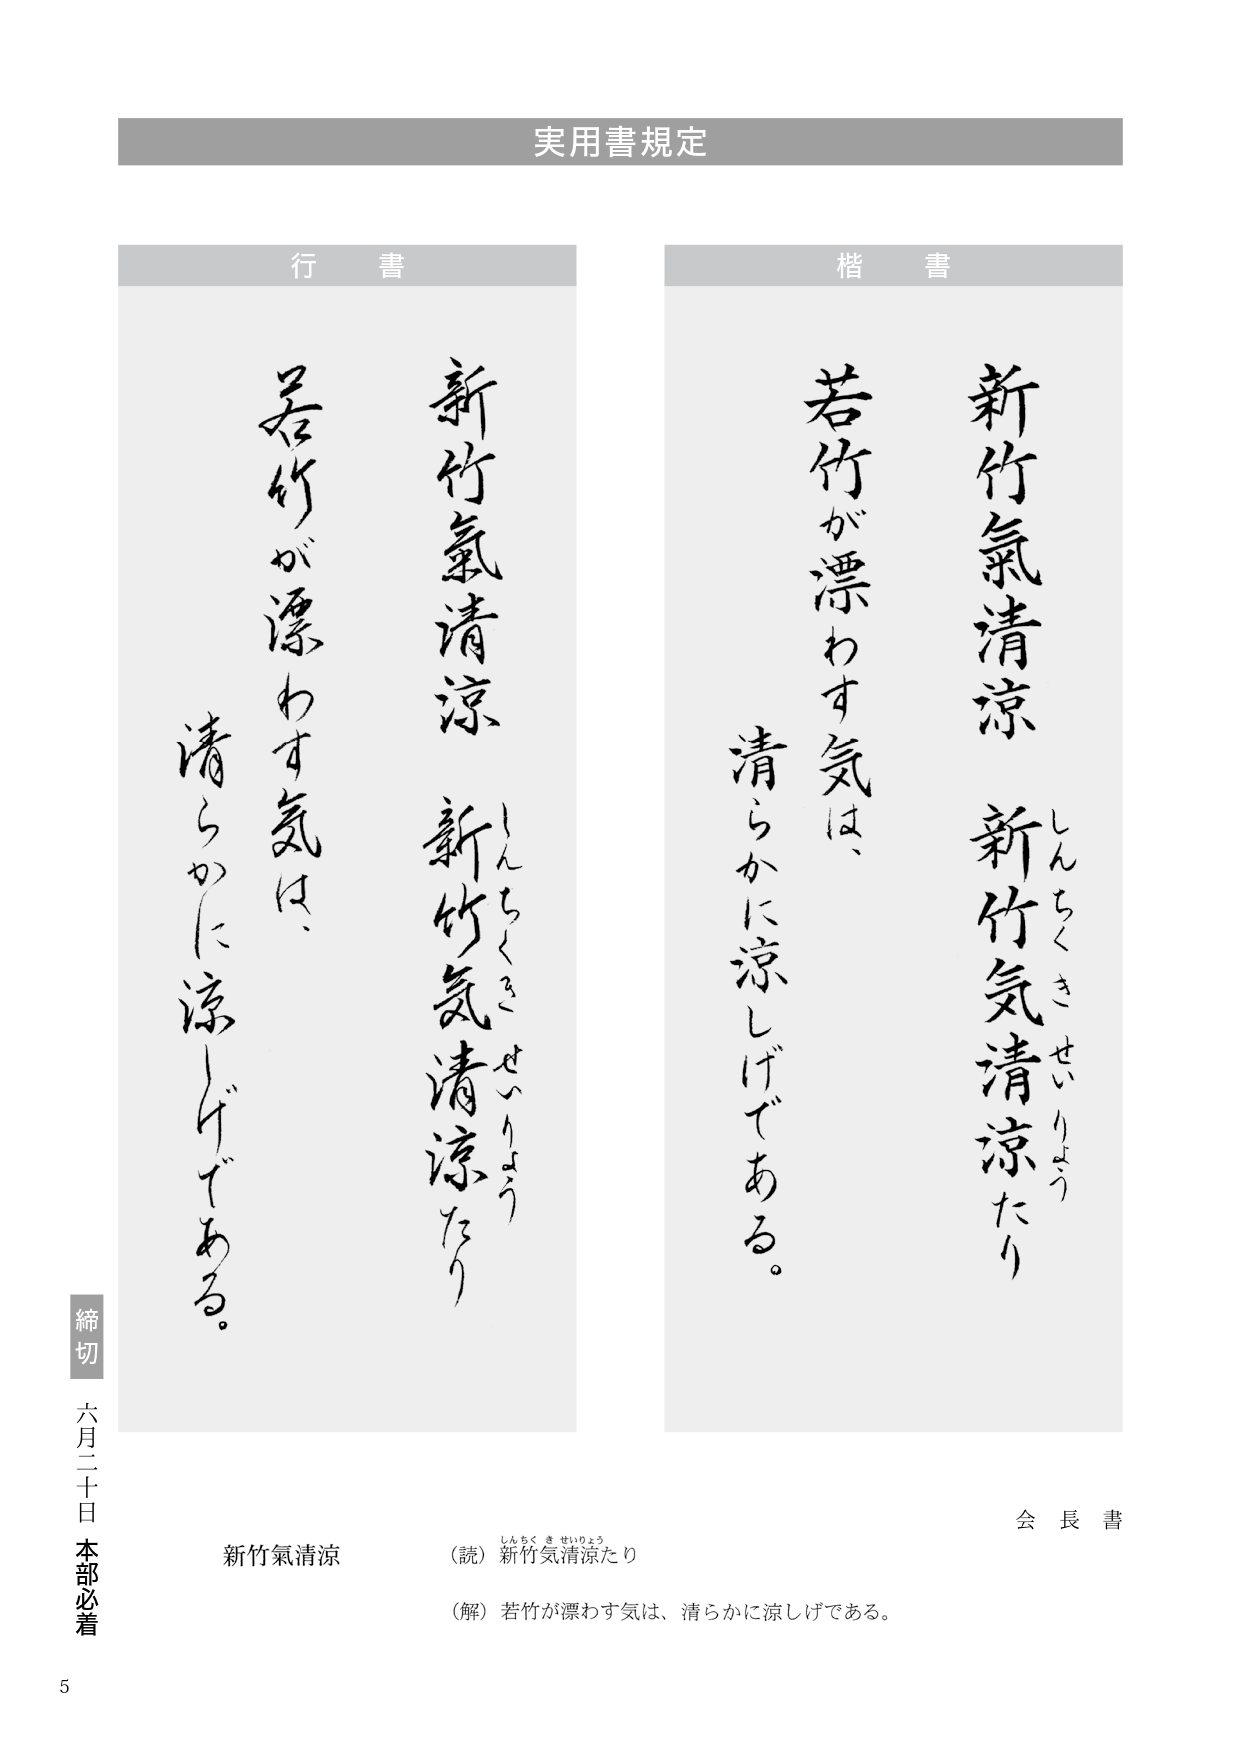 実用書規定
楷書
新竹氣清涼　新竹気清涼たり
しんちくきせいりょう
若竹が漂わす気は、
清らかに涼しげである。
行書
新竹氣清涼　新竹気清涼たり
しんちくきせいりょう
若竹が漂わす気は、
清らかに涼しげである。
会長書
新竹氣清涼
しんちくきせいりょう
（読）新竹気清涼たり
（解）若竹が漂わす気は、清らかに涼しげである。
締切　六月二十日　本部必着
5